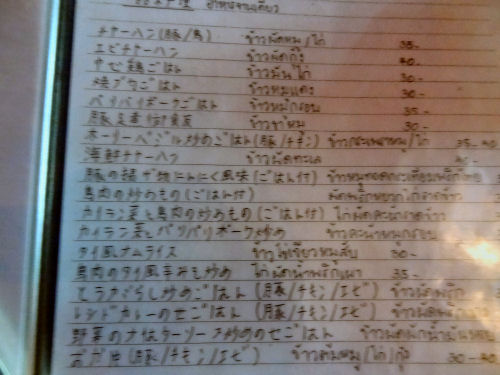 อาหารจานเดียว
チャーハン(豚/鳥) ข้าวผัดหมู/ไก่ 35-
エビチャーハン ข้าวผัดกุ้ง 40-
ゆで鶏ごはん ข้าวมันไก่ 30-
焼ブタごはん ข้าวหมูแดง 30-
パリパリポークごはん ข้าวหมูกรอบ 35-
豚足 ข้าวขาหมู 30-
ホーリーベジル炒めごはん(豚/チキン) ข้าวกระเพราหมู/ไก่ 35-40
海鮮チャーハン ข้าวผัดทะเล
豚の揚げ物にんにく風味(ごはん付) ข้าวหมูทอดกระเทียมพริกไทย
鳥肉の炒めもの(ごはん付)
カイラン菜と鳥肉の炒めもの(ごはん付) ไก่ผัดคะน้าราดข้าว
カイラン菜とパリパリポーク炒め ข้าวคะน้าหมูกรอบ
タイ風オムライス ข้าวไข่เจียวหมูสับ 30-
鳥肉のタイ風 炒め ไก่ผัดน้ำพริกเผา 35-
とうがらし炒めごはん(豚/チキン/エビ) ข้าวผัดพริก
レッドカレーのせごはん(豚/チキン/エビ)
野菜の オイスターソース炒めのせごはん ข้าวผัดผักน้ำมันหอย
おかゆ(豚/チキン/エビ) ข้าวต้มหมู/ไก่/กุ้ง 30-40